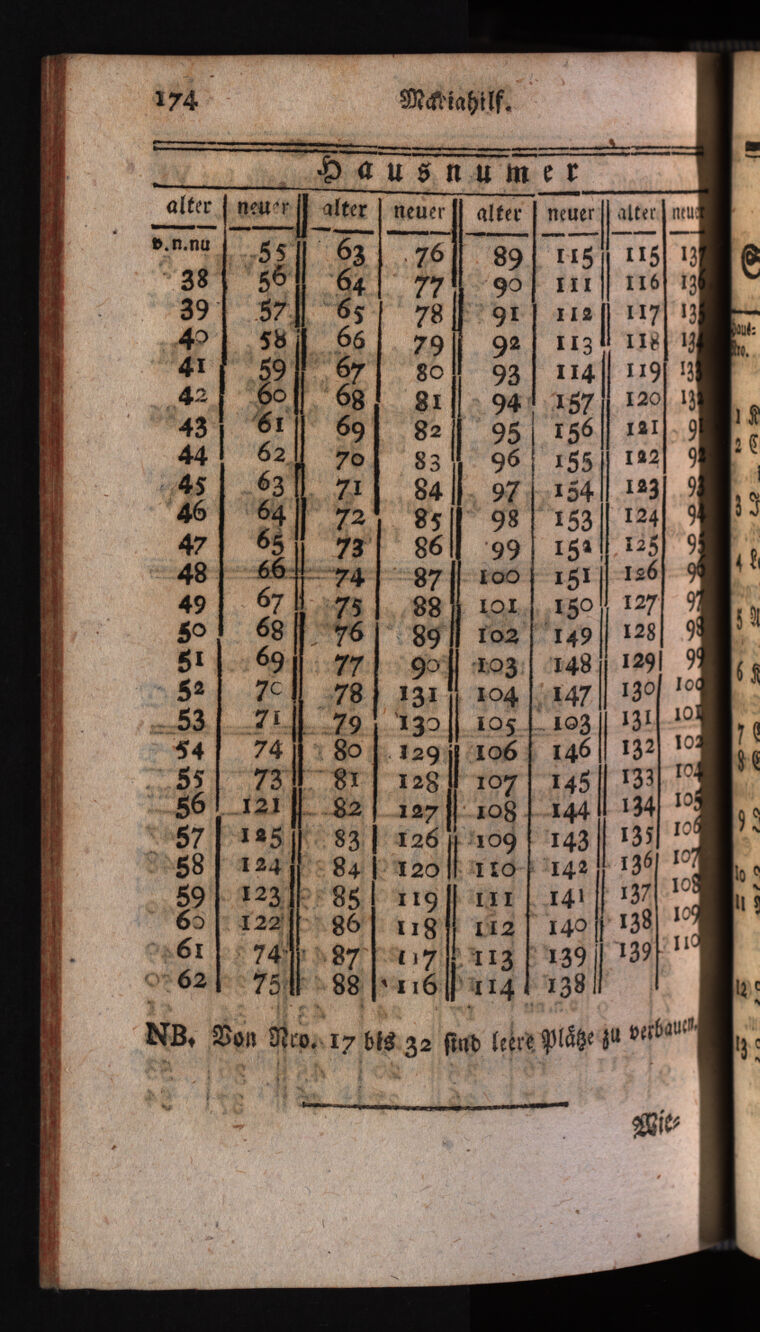 174 Mariahilf.
Hausnumer
alter neuer alter neuer alter neuer alter
v.n.nu 55 63 76 89 115 115
38 56 64 77 90 111 116
39 57 65 78 91 112 117
40 58 66 79 92 113 118
41 59 67 80 93 114 119
42 60 68 81 94 157 120
43 61 69 82 95 156 121
44 62 70 83 96 155 122
45 63 71 84 97 154 123
46 64 72 85 98 153 124
47 65 73 86 99 152 125
48 66 74 87 100 151 126
49 67 75 88 101 150 127
50 68 76 89 102 149 128
51 69 77 90 103 148 129 99
52 70 78 131 104 147 130 100
53 71 79 130 105 103 131 101
54 74 80 129 106 146 132 102
55 73 81 128 107 145 133 104
56 121 82 127 108 144 134 105
57 125 83 126 109 143 135 106
58 124 84 120 110 142 136 107
59 123 85 119 111 141 137 108
60 122 86 118 112 140 138 109
61 74 87 117 113 139 139 110
62 75 88 116 114 138
NB. Von Nro. 17 bis 32 sind leere Plätze zu verbauen.
Wie-